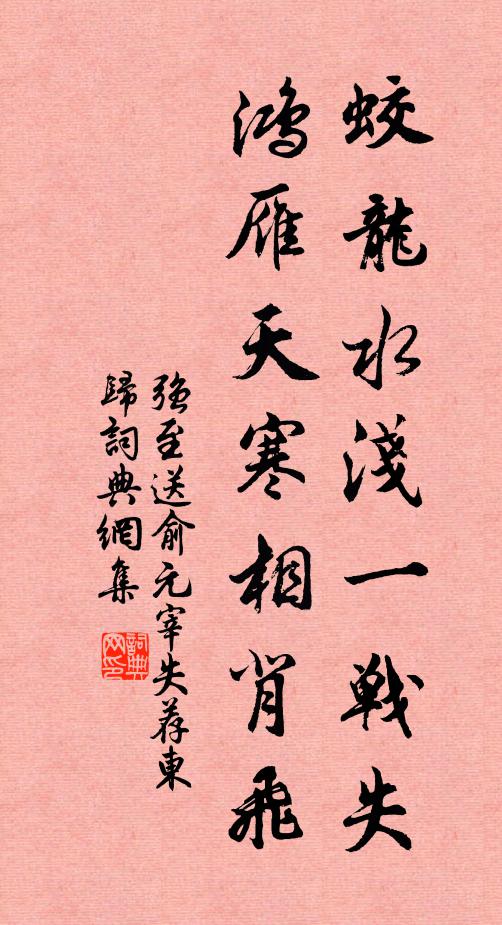 蛟龍水淺一戰失
鴻雁天寒相背飛
強至送俞元宰失荐東
歸詞典網集
詞典
网印